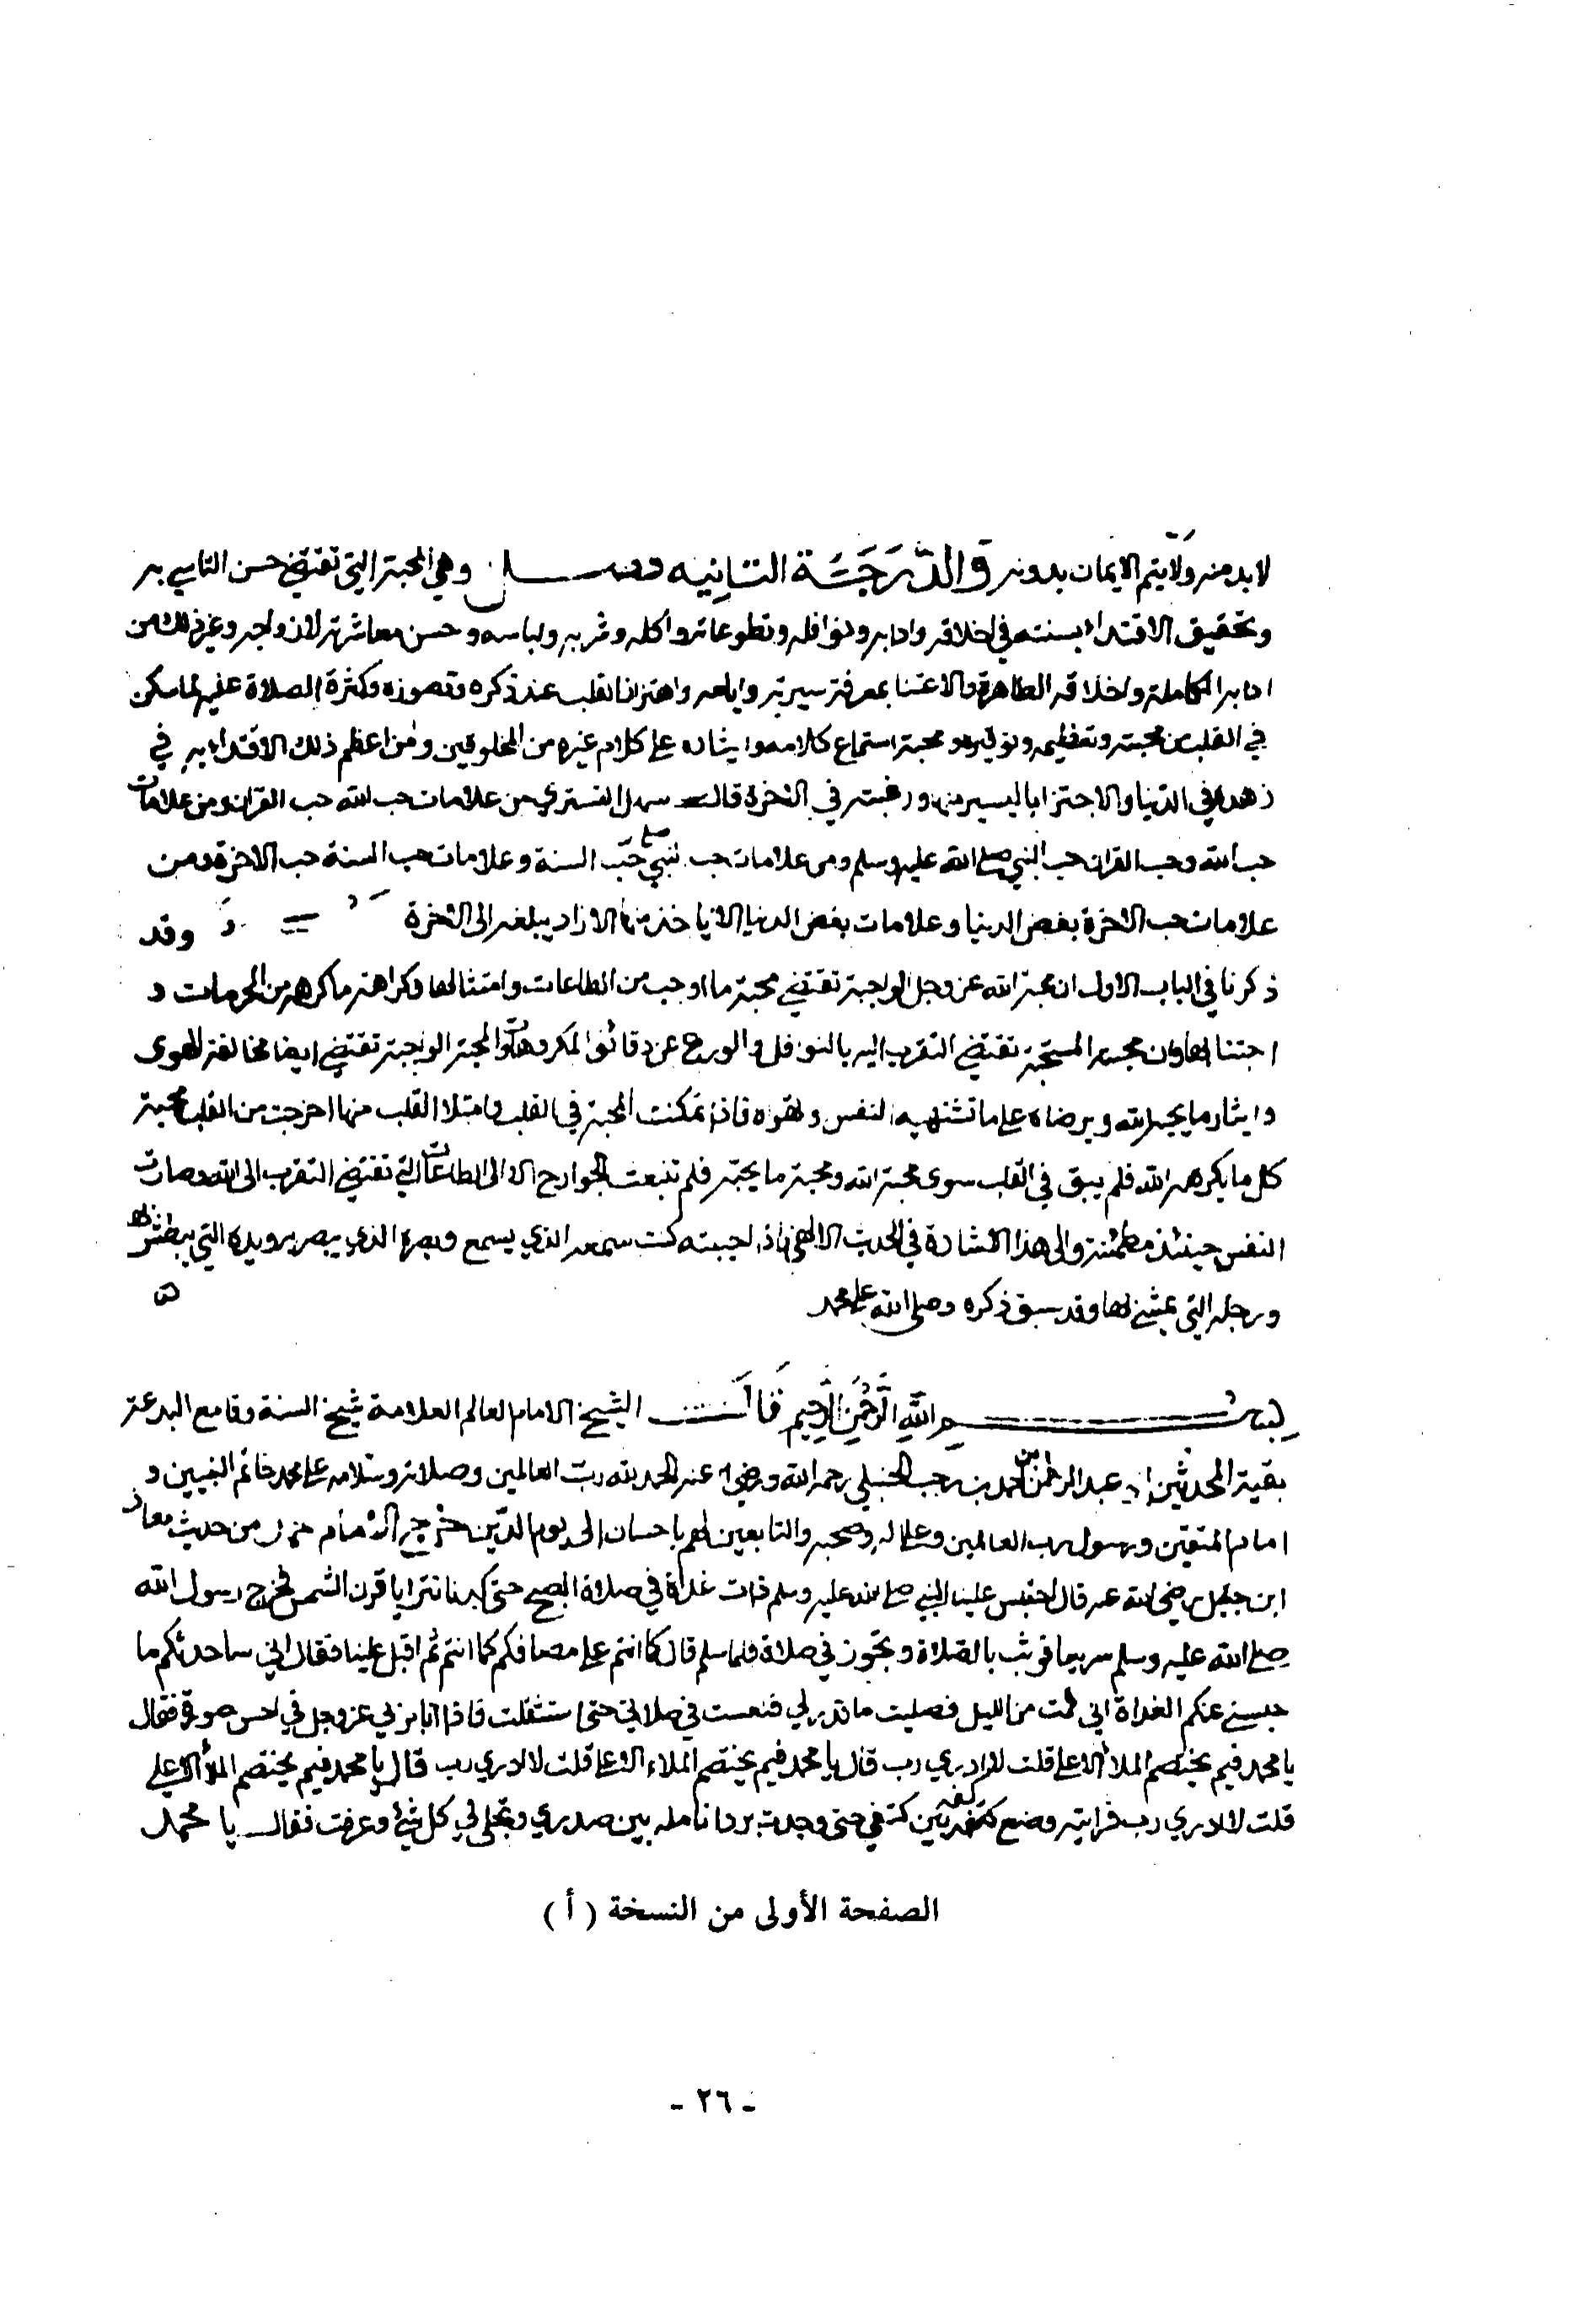 لابد منه ولا يتم الايمان بدونه والدرجة الثانيه فضل وهي المحبة التي تقتضي حسن التاسي به
وتحقيق الاقتداء بسنته في اخلاقه وادابه ونوافله وتطوعاته واكله وشربه ولباسه وحسن معاشرته لازواجه وغير ذلك من
ادابه الكاملة واخلاقه الطاهرة والاعتنا بمعرفة سيرته وايامه واهتزاز القلب عند ذكره وتصوره وكثرة الصلاة عليه لما سكن
في القلب من محبته وتعظيمه وتوقيره ومحبة استماع كلامه وايثاره على كلام غيره من المخلوقين ومن اعظم ذلك الاقتداء به في
زهده في الدنيا والاجتزا باليسير منها ورغبته في الاخرة قال سهل التستري من علامات حب الله حب القران ومن علامات
حب الله وحب القران حب النبي صلى الله عليه وسلم ومن علامات حب النبي صلى حب السنة وعلامات حب السنة حب الاخرة ومن
علامات حب الاخرة بغض الدنيا وعلامات بغض الدنيا الا ياخذ منها الا زاد يبلغه الى الاخرة وقد
ذكرنا في الباب الاول ان محبة الله عز وجل الواجبة تقتضي محبة ما اوجب من الطاعات وامتثالها وكراهة ما كرهه من المحرمات و
اجتنابها وان محبته المستحبة تقتضي التقرب اليه بالنوافل والورع عن دقائق المكروهات والمحبة الواجبة تقتضي ايضا مخالفة الهوى
وايثار ما يحبه الله ويرضاه على ما تشتهيه النفس وتهواه فاذا تمكنت المحبة في القلب وامتلا القلب منها اخرجت من القلب محبة
كل ما يكرهه الله فلم يبق في القلب سوى محبة الله ومحبة ما يحبه فلم تنبعث الجوارح الا الى الطاعات التي تقتضي التقرب الى الله وصارت
النفس حينئذ مطمئنة والى هذا الاشارة في الحديث الالهي فاذا احببته كنت سمعه الذي يسمع وبصره الذي يبصر به ويده التي يبطش بها
ورجله التي يمشي بها وقد سبق ذكره وصلى الله على محمد
بسم الله الرحمن الرحيم قال الشيخ الامام العالم العلامة شيخ السنة وقامع البدعة
بقية المحدثين عبد الرحمن بن احمد بن رجب الحنبلي رحمه الله ورضي عنه الحمد لله رب العالمين وصلاته وسلامه على محمد خاتم النبيين و
امام المتقين ورسول رب العالمين وعلى اله وصحبه والتابعين لهم باحسان الى يوم الدين خرج الامام من حديث معاذ
ابن جبل رضي الله عنه قال احتبس علينا النبي صلى الله عليه وسلم ذات غداة في صلاة الصبح حتى كدنا نترايا قرن الشمس فخرج رسول الله
صلى الله عليه وسلم سريعا فوثب بالصلاة وتجوز في صلاته فلما سلم قال كما انتم على مصافكم كما انتم ثم اقبل علينا فقال اني ساحدثكم ما
حبسني عنكم الغداة اني قمت من الليل فصليت ما قدر لي فنعست في صلاتي حتى استثقلت فاذا انا بربي عز وجل في احسن صورة فقال
يا محمد فيم يختصم الملا الاعلى قلت لا ادري رب قال يا محمد فيم يختصم الملاء الاعلى قلت لا ادري رب قال يا محمد فيم يختصم الملأ الاعلى
قلت لا ادري رب فرايته وضع كفه بين كتفي حتى وجدت برد انامله بين صدري وتجلى لي كل شئ وعرفت فقال يا محمد
الصفحة الأولى من النسخة ( أ )
- ٢٦ -